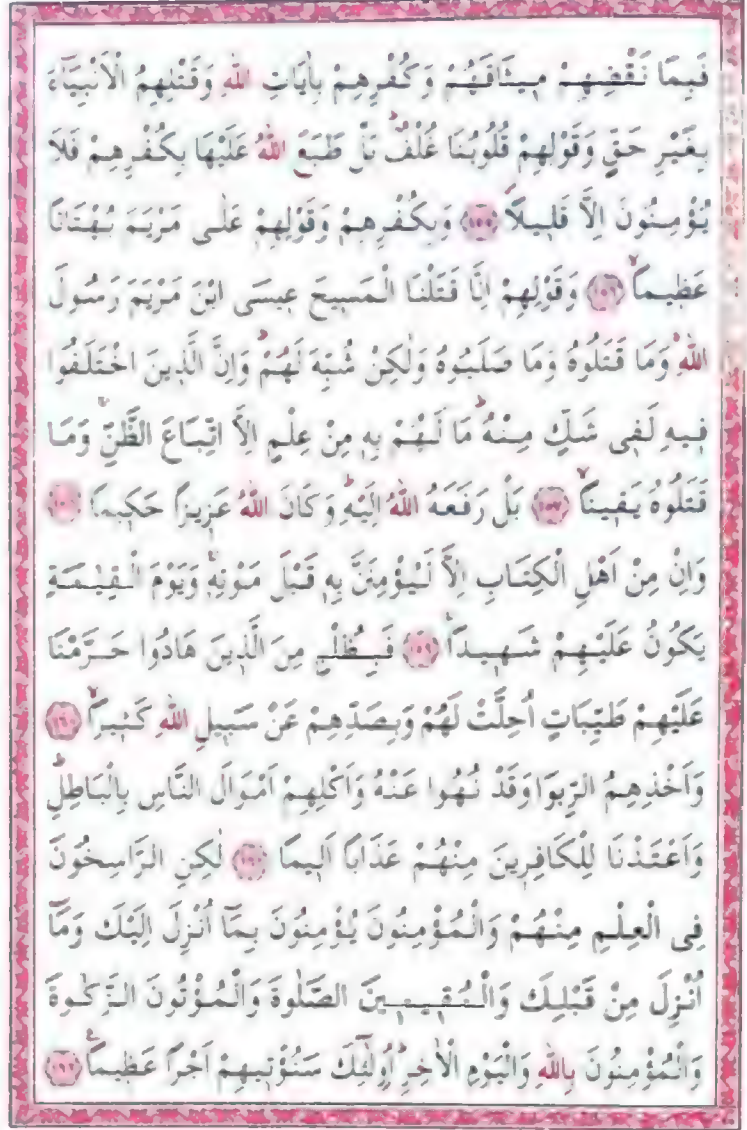 فَبِمَا نَقْضِهِمْ مٖيثَاقَهُمْ وَكُفْرِهِمْ بِاٰيَاتِ اللّٰهِ وَقَتْلِهِمُ الْاَنْبِيَٓاءَ
بِغَيْرِ حَقٍّ وَقَوْلِهِمْ قُلُوبُنَا غُلْفٌؕ بَلْ طَبَعَ اللّٰهُ عَلَيْهَا بِكُفْرِهِمْ فَلَا
يُؤْمِنُونَ اِلَّا قَلٖيلاًۖ ﴿١٥٥﴾ وَبِكُفْرِهِمْ وَقَوْلِهِمْ عَلٰى مَرْيَمَ بُهْتَانًا
عَظٖيماًۙ ﴿١٥٦﴾ وَقَوْلِهِمْ اِنَّا قَتَلْنَا الْمَسٖيحَ عٖيسَى ابْنَ مَرْيَمَ رَسُولَ
اللّٰهِۚ وَمَا قَتَلُوهُ وَمَا صَلَبُوهُ وَلٰكِنْ شُبِّهَ لَهُمْؕ وَاِنَّ الَّذٖينَ اخْتَلَفُوا
فٖيهِ لَفٖى شَكٍّ مِنْهُؕ مَا لَهُمْ بِهٖ مِنْ عِلْمٍ اِلَّا اتِّبَاعَ الظَّنِّۚ وَمَا
قَتَلُوهُ يَقٖيناًۙ ﴿١٥٧﴾ بَلْ رَفَعَهُ اللّٰهُ اِلَيْهِؕ وَكَانَ اللّٰهُ عَزٖيزاً حَكٖيماً ﴿١٥٨﴾
وَاِنْ مِنْ اَهْلِ الْكِتَابِ اِلَّا لَيُؤْمِنَنَّ بِهٖ قَبْلَ مَوْتِهٖۚ وَيَوْمَ الْقِيٰمَةِ
يَكُونُ عَلَيْهِمْ شَهٖيداًۚ ﴿١٥٩﴾ فَبِظُلْمٍ مِنَ الَّذٖينَ هَادُوا حَرَّمْنَا
عَلَيْهِمْ طَيِّبَاتٍ اُحِلَّتْ لَهُمْ وَبِصَدِّهِمْ عَنْ سَبٖيلِ اللّٰهِ كَثٖيراًۙ ﴿١٦٠﴾
وَاَخْذِهِمُ الرِّبٰوا وَقَدْ نُهُوا عَنْهُ وَاَكْلِهِمْ اَمْوَالَ النَّاسِ بِالْبَاطِلِؕ
وَاَعْتَدْنَا لِلْكَافِرٖينَ مِنْهُمْ عَذَاباً اَلٖيماً ﴿١٦١﴾ لٰكِنِ الرَّاسِخُونَ
فِى الْعِلْمِ مِنْهُمْ وَالْمُؤْمِنُونَ يُؤْمِنُونَ بِمَٓا اُنْزِلَ اِلَيْكَ وَمَٓا
اُنْزِلَ مِنْ قَبْلِكَ وَالْمُقٖيمٖينَ الصَّلٰوةَ وَالْمُؤْتُونَ الزَّكٰوةَ
وَالْمُؤْمِنُونَ بِاللّٰهِ وَالْيَوْمِ الْاٰخِرِؕ اُولٰٓئِكَ سَنُؤْتٖيهِمْ اَجْراً عَظٖيماًۚ ﴿١٦٢﴾